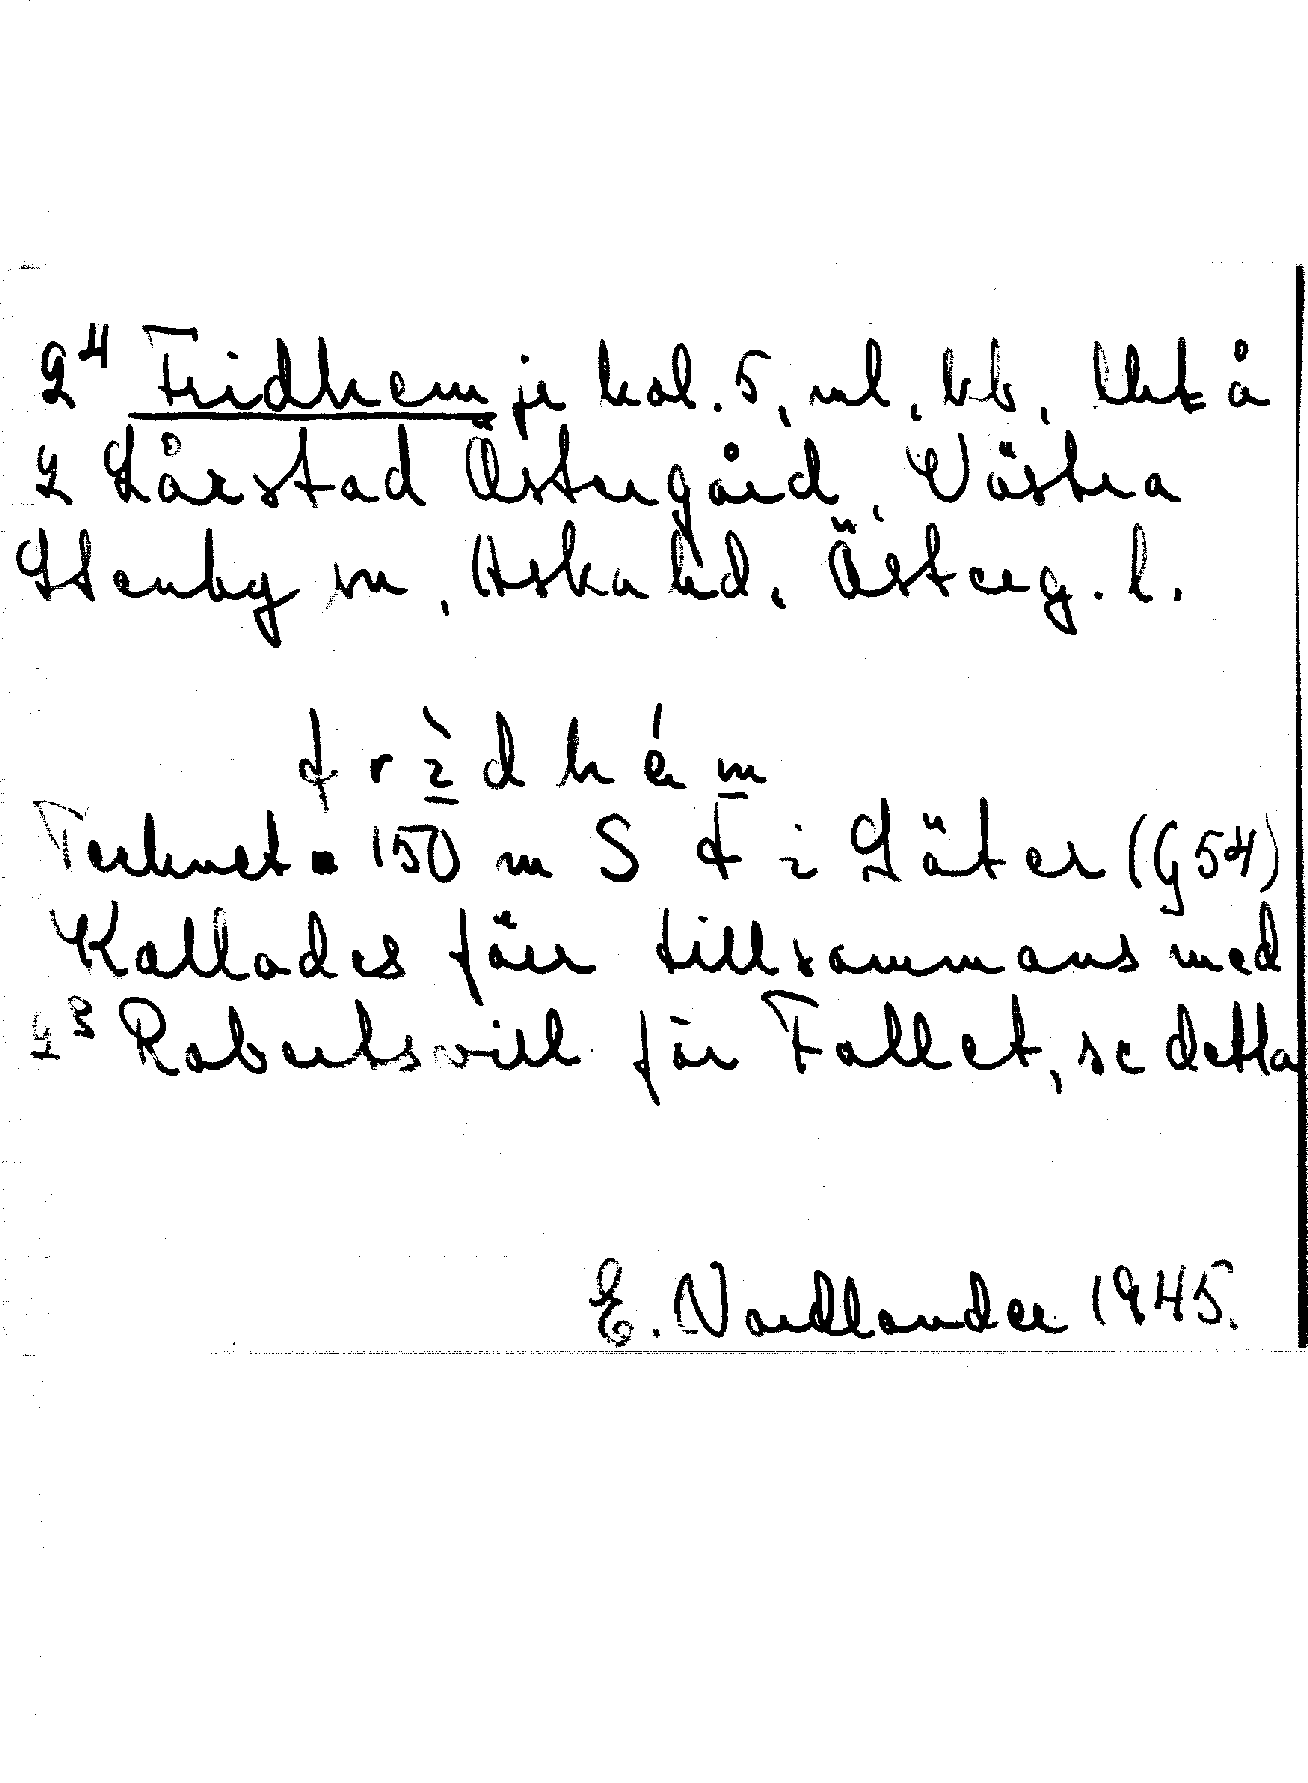 2⁴ Fridhem je kol. 5, ml, kb, lht å
2 Lårstad Östergård, Västra
Stenby sn, Aska hd, Österg. l.
f r ì d h é m
Tecknet ▪ 150 m S f i Säter (G54)
Kallades förr tillsammans med
2³ Robertsvill för Fallet, se detta
E. Nordlander 1945.